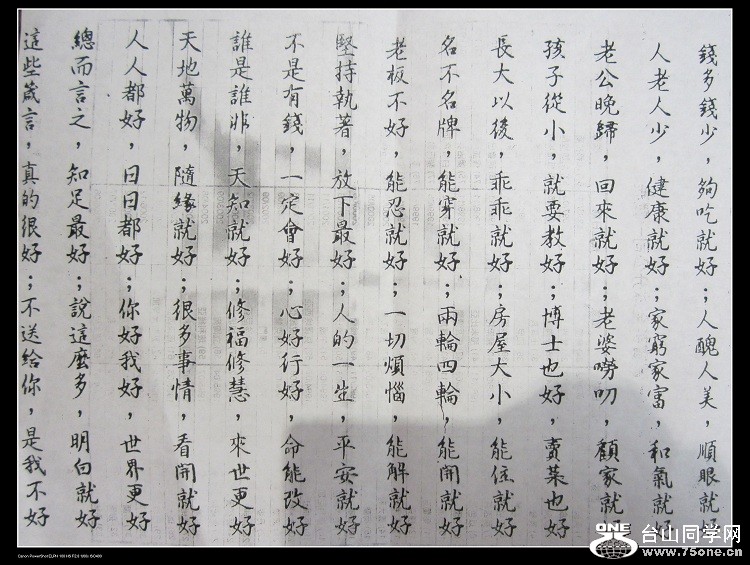 錢多錢少，夠吃就好；人醜人美，順眼就好
人老人少，健康就好；家窮家富，和氣就好
老公晚歸，回來就好；老婆嘮叨，顧家就好
孩子從小，就要教好；博士也好，賣菜也好
長大以後，乖乖就好；房屋大小，能住就好
名不名牌，能穿就好；兩輪四輪，能開就好
老板不好，能忍就好；一切煩惱，能解就好
堅持執著，放下最好；人的一生，平安就好
不是有錢，一定會好；心好行好，命能改好
誰是誰非，天知就好；修福修慧，來世更好
天地萬物，隨緣就好；很多事情，看開就好
人人都好，日日都好；你好我好，世界更好
總而言之，知足最好；說這麼多，明白就好
這些箴言，真的很好；不送給你，是我不好
ONE
台山同学网
www.75one.cn